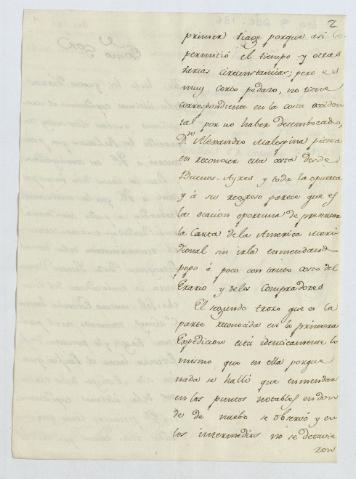 2
primer viage porque asi lo
permitió el tiempo y otras
varias circunstancias; pero es
muy corto pedazo, no tiene
correspondiente en la costa occiden
tal por no haber desembocado,
Dn Alexandro Malaspina piensa
en reconocer esta costa desde
Buenos-Ayres y toda la opuesta
y á su regreso parece que es
la ocasion oportuna de
la Carta de la America meri
dional sin irla enmendando
poco á poco con tanto costo del
Erario y de los Compradores
El segundo trozo que es la
parte reconocida en la primera
Expedicion está identicamente lo
mismo que en ella porque
nada se halló que enmendar
en los puntos notables en don
de de nuebo se observó y en
los intermedios no se
ron